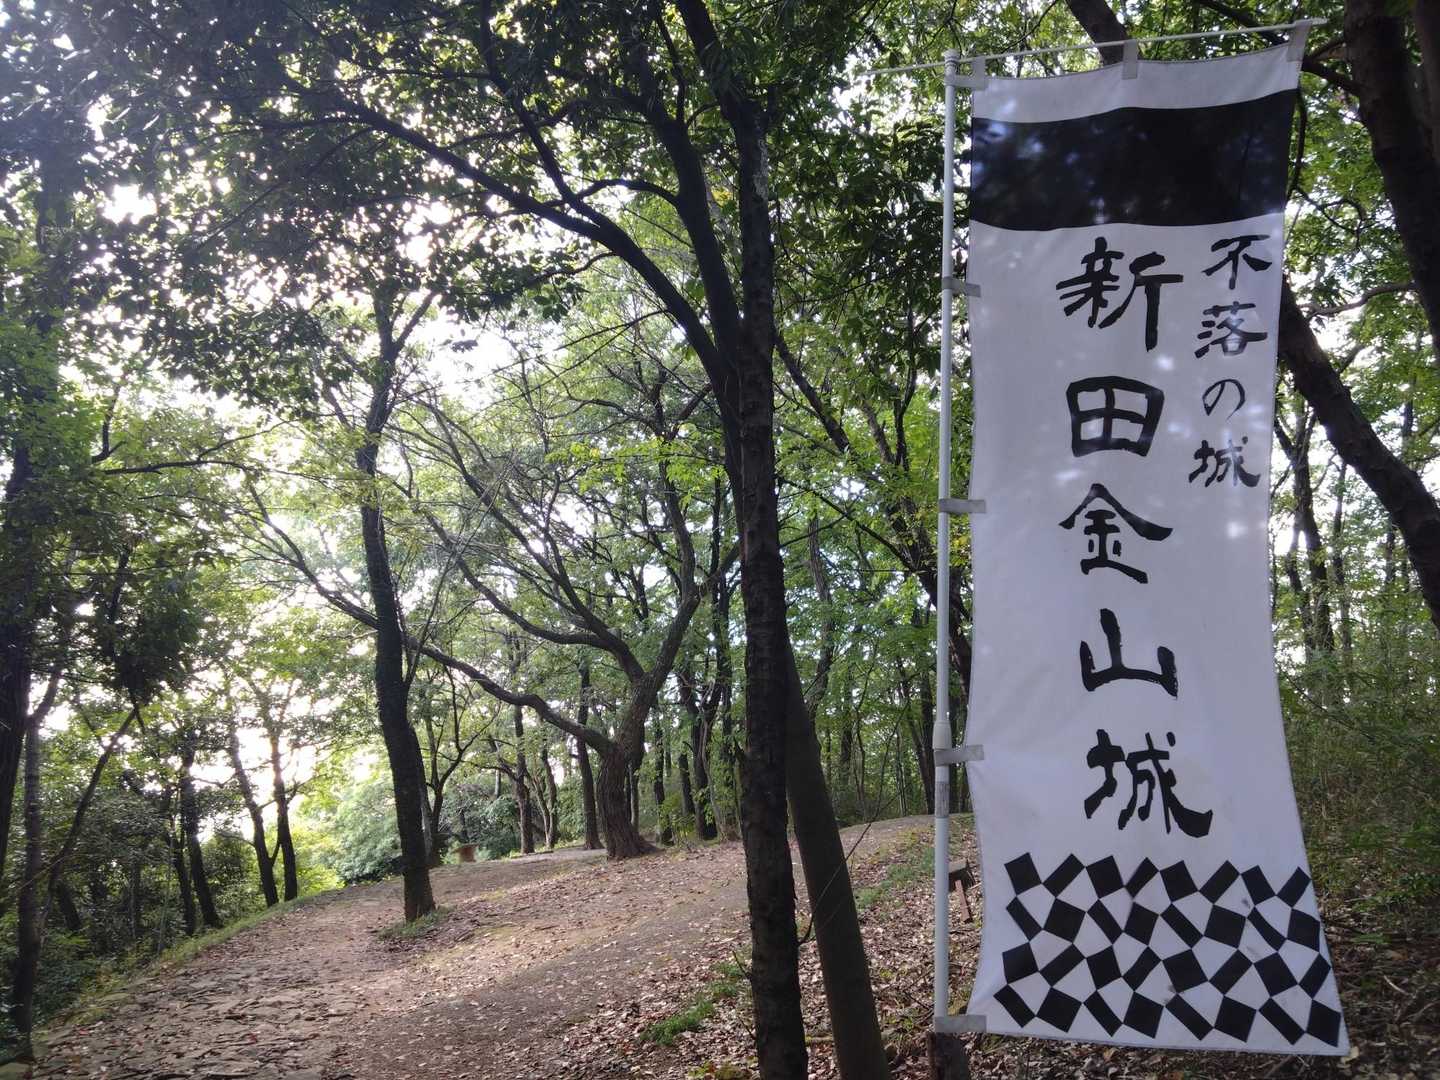 不落の城
新田金山城